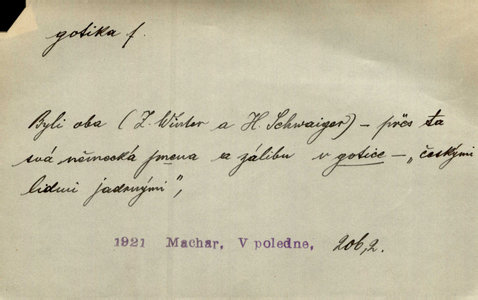 gotika f.
Byli oba (Z. Winter a H. Schwaiger) – přes ta
svá německá jména a zálibu v gotice – „českými
lidmi jadrnými",
1921 Machar, V poledne, 206,2.